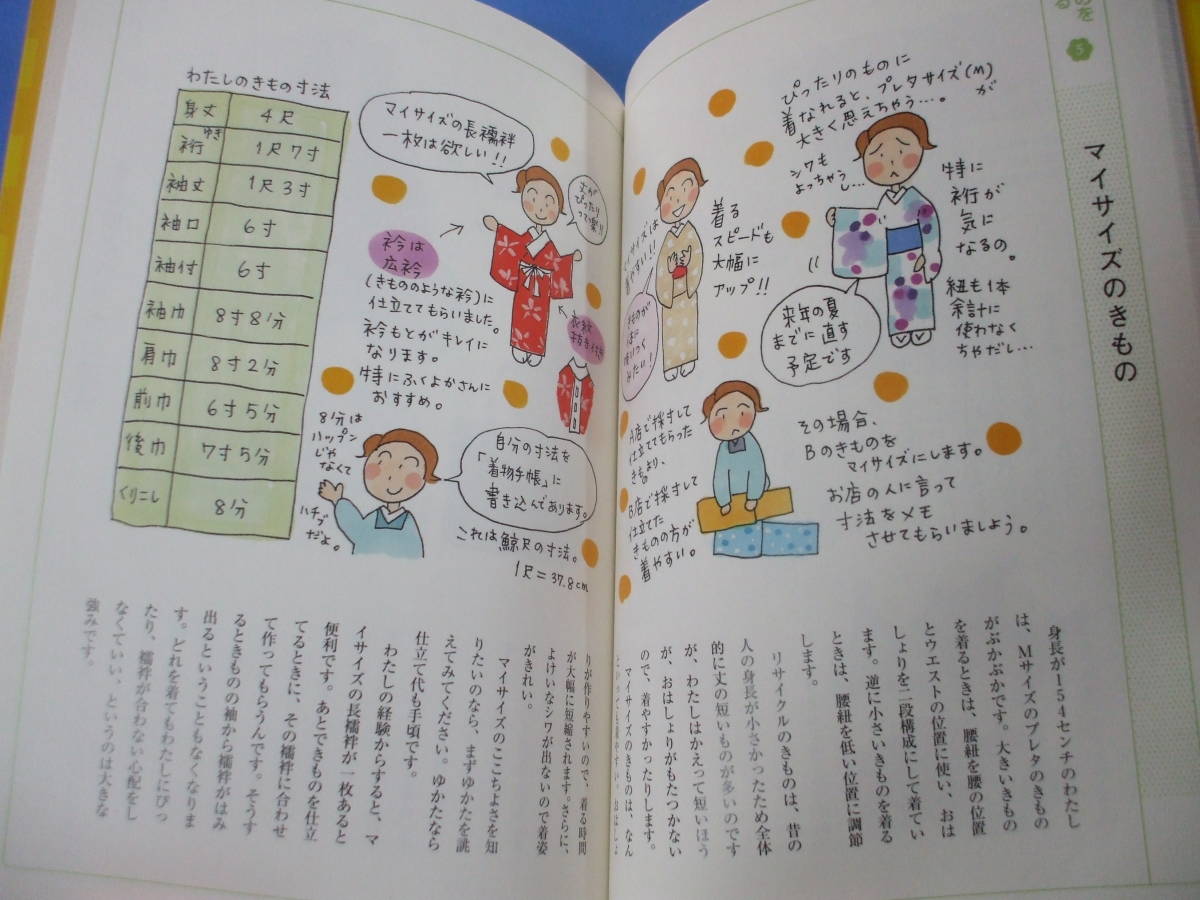 のを
る
5
マイサイズのきもの
ぴったりのものに
着なれると、プレタサイズ(M)が
大きく思えちゃう…。
シワも
よっちゃうし…
特に
裄が
気に
なるの。
紐も1本
余計に
使わなく
ちゃだし…
来年の夏
までに直す
予定です
着る
スピードも
大幅に
アップ!!
マイサイズは
着やすい!!
きものが
A店で採寸して
仕立ててもらった
きものより、
B店で採寸して
仕立てた
きものの方が
着やすい。
その場合、
Bのきものを
マイサイズにします。
お店の人に言って
寸法をメモ
させてもらいましょう。
身長が154センチのわたし
は、Mサイズのプレタのきもの
がぶかぶかです。大きいきもの
を着るときは、腰紐を腰の位置
とウエストの位置に使い、おは
しょりを二段構成にして着てい
ます。逆に小さいきものを着る
ときは、腰紐を低い位置に調節
します。
リサイクルのきものは、昔の
人の身長が小さかったため全体
的に丈の短いものが多いのです
が、わたしはかえって短いほう
が、おはしょりがもたつかない
ので、着やすかったりします。
マイサイズのきものは、なん
わたしのきもの寸法
身丈 4尺
裄 ゆき 1尺7寸
袖丈 1尺3寸
袖口 6寸
袖付 6寸
袖巾 8寸8分
肩巾 8寸2分
前巾 6寸5分
後巾 7寸5分
くりこし 8分
マイサイズの長襦袢
一枚は欲しい!!
丈が
ぴったり
って楽!!
衿は
広衿
(きもののような衿)に
仕立ててもらいました。
衿もとがキレイに
なります。
特にふくよかさんに
おすすめ。
衣紋
抜き付き
8分は
ハップン
じゃ
なくて
ハチブ
だよ。
自分の寸法を
「着物手帳」に
書き込んであります。
これは鯨尺の寸法。
1尺=37.8cm
りが作りやすいので、着る時間
が大幅に短縮されます。さらに、
よけいなシワが出ないので着姿
がきれい。
マイサイズのここちよさを知
りたいのなら、まずゆかたを誂
えてみてください。ゆかたなら
仕立て代も手頃です。
わたしの経験からすると、マ
イサイズの長襦袢が一枚あると
便利です。あとできものを仕立
てるときに、その襦袢に合わせ
て作ってもらうんです。そうす
るときものの袖から襦袢がはみ
出るということもなくなりま
す。どれを着てもわたしにぴっ
たり、襦袢が合わない心配をし
なくていい、というのは大きな
強みです。